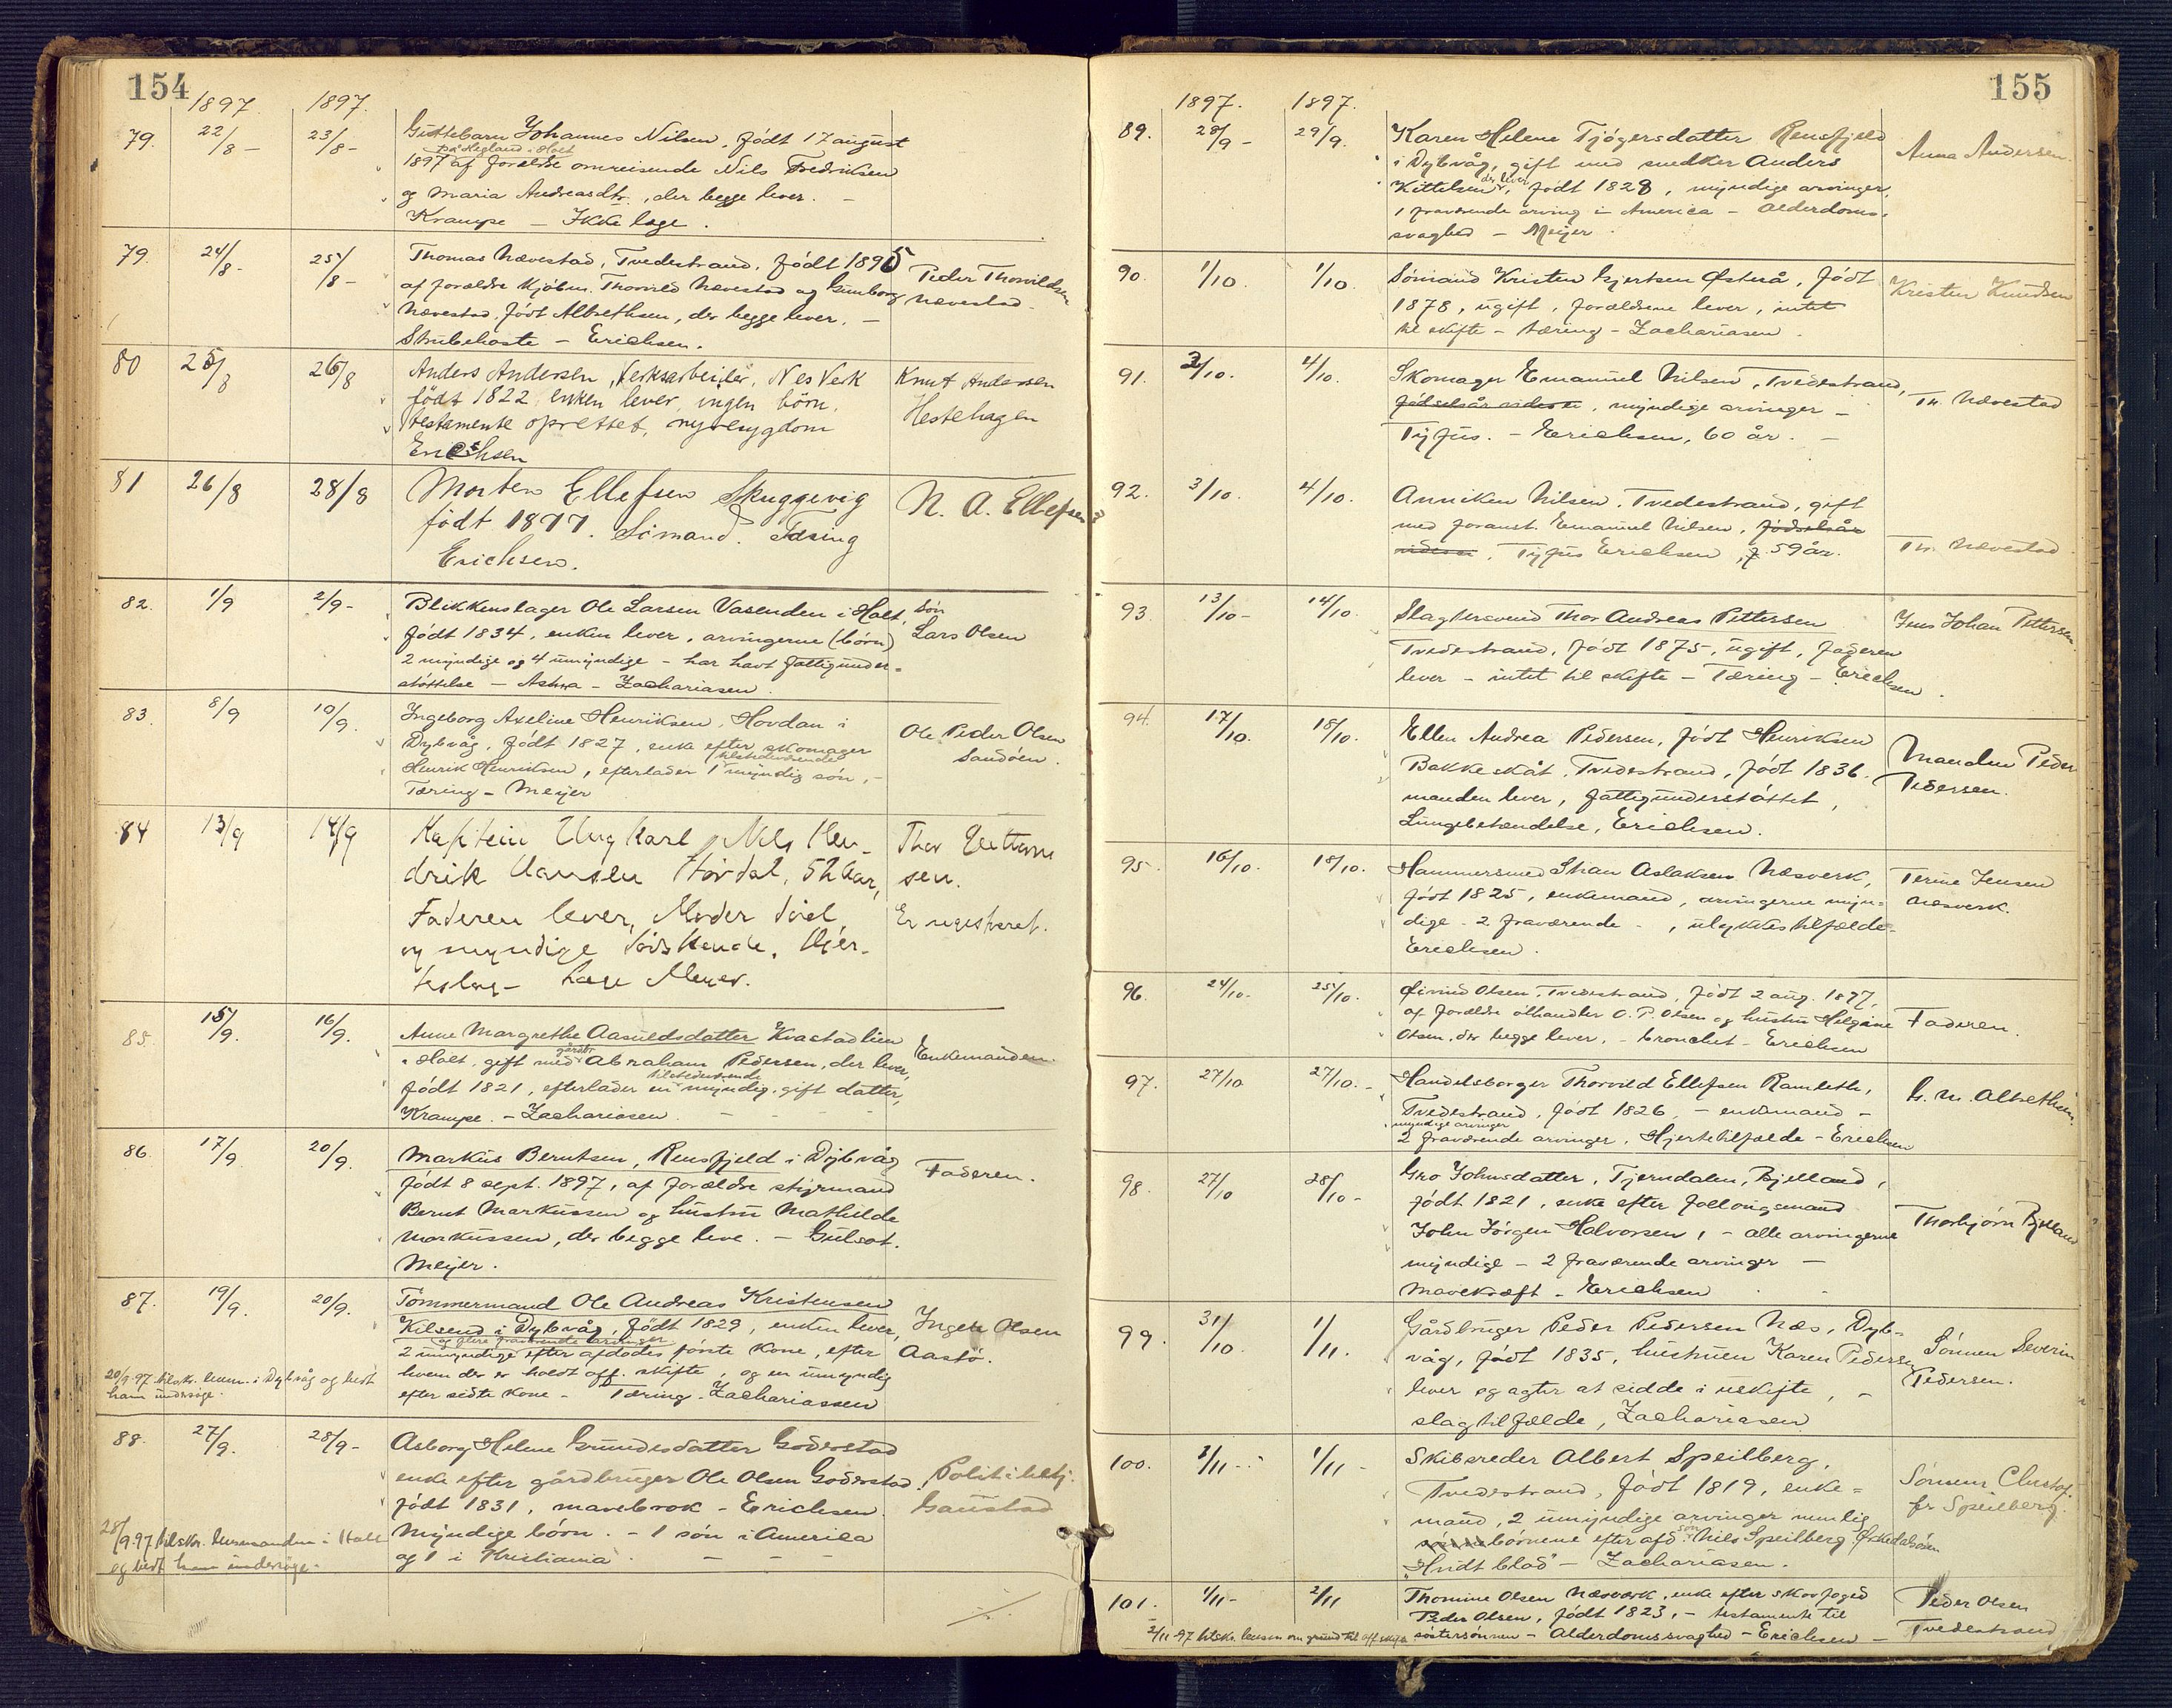 154
1897. 1897.
79. 22/8 - 23/8 - Guttebarn Johannes Nilsen, født 17 august
på Hegland i Holt
1897 af forældre omreisende Nils Fredriksen
og Maria Andreasdtr., der begge lever. -
Krampe - Ikke læge.
79. 24/8 - 25/8 - Thomas Nævestad, Tvedestrand, født 1895 Peder Thorvildsen
af forældre Kjøbm. Thorvild Nævestad og Gunborg Nævestad.
Nævestad, født Albrethsen, der begge lever. -
Strubehoste - Erichsen.
80 25/8 26/8 Anders Andersen, Verksarbeider, Nes Verk Knut Andersen
født 1822, enken lever, ingen børn, Hestehagen
testamente oprettet, nyresygdom
Erichsen
81 26/8 28/8 Morten Ellefsen Skuggevig N. A. Ellefsen
født 1877. Sømand. Tæring
Erichsen.
82. 1/9 2/9 - Blikkenslager Ole Larsen Vasenden i Holt, Søn
født 1834, enken lever, arvingerne (børn) Lars Olsen
2 myndige og 4 umyndige - har havt fattigunder-
støttelse - Astma - Zachariasen.
83. 8/9 10/9. Ingeborg Axeline Henriksen, Hovdan i
Dybvåg, født 1827, enke efter skomager Ole Peder Olsen
tilstedeværende
Henrik Henriksen, efterlader 1 myndig søn, - Sandøen.
Tæring - Meyer
84 13/9 14/9 Kaptein Ungkarl Nils Hen- Thor
drik Hansen 52 Aar, sen.
Faderen lever, Moder død Er registreret.
og myndige Sødskende. Hjer-
teslag - Læge Meyer.
85. 15/9. 16/9. Anne Margrethe Aasuldsdatter Kvastadlien
gårdbr.
i Holt, gift med Abraham Pedersen, der lever, Enkemanden.
tilstedeværende
født 1821, efterlader en myndig, gift datter,
Krampe. - Zachariasen. - - - -
86. 17/9 20/9. Markus Berntsen, Rensfjeld i Dybvåg Faderen.
født 8 sept. 1897, af forældre styrmand
Bernt Markussen og hustru Mathilde
Markussen, der begge leve. - Gulsot.
Meyer.
87. 19/9. 20/9. Tømmermand Ole Andreas Kristensen
Kilsund i Dybvåg, født 1829, enken lever, Inger Olsen
og flere fraværende arvinger
2 umyndige efter afdødes første kone, efter Aastø.
hvem der er holdt off. skifte, og en umyndig
20/9.97. tilskr. lensm. i Dybvåg og bedt
ham undersøge.
efter sidste kone - Tæring - Zachariassen
88. 27/9. 28/9 - Asborg Helene Gundersdatter Goderstad
enke efter gårdbruger Ole Olsen Goderstad. Politibetj.
født 1831, mavebrok - Erichsen. Gaustad
28/9.97 tilskr. lensmanden i Holt
og bedt ham undersøge.
Myndige børn. - 1 søn i America
og 1 i Kristiania. - - -
155
1897. 1897.
89. 28/9 - 29/9. Karen Helene Tjøgersdatter Rensfjeld Anna Andersen.
i Dybvåg, gift med snedker Anders
der lever
Kittelsen, født 1828, myndige arvinger,
1 fraværende arving i America - Alderdoms-
svaghed - Meyer.
90. 1/10. 1/10. Sømand Kristen Gjertsen Østerå, født Kristen Knudsen
1878, ugift, forældrene lever, intet
til skifte - tæring - Zachariasen.
91. 3/10. 4/10. Skomager Emanuel Nilsen, Tvedestrand, Th. Nævestad
fødselsår vides ei, myndige arvinger -
Tyfus. - Erichsen, 60 år. -
92. 3/10. 4/10. Anniken Nilsen, Tvedestrand, gift
med foranst. Emanuel Nilsen, fødselsår
vides ei. Tyfus Erichsen, f. 59 år. Th. Nævestad.
93. 13/10 - 14/10. Slagtersvend Thor Andreas Pettersen Jens Johan Pettersen.
Tvedestrand, født 1875, ugift, faderen
lever - intet til skifte - Tæring - Erichsen.
94. 17/10. 18/10. Ellen Andrea Pedersen, født Henriksen Manden Peder
Bakkeskåt, Tvedestrand, født 1836. Pedersen.
manden lever, fattigunderstøttet,
Lungebetændelse, Erichsen.
95. 16/10. 18/10. Hammersmed Aslaksen Næsverk, Terine Jensen
født 1825, enkemand, arvingerne myn- Næsverk.
dige - 2 fraværende - , ulykkestilfælde -
Erichsen.
96. 24/10. 25/10. Øivind Olsen, Tvedestrand, født 2 aug. 1897,
af forældre ølhandler O. P. Olsen og hustru Helgine Faderen.
Olsen, der begge lever. - bronchit - Erichsen
97. 27/10 27/10. - Handelsborger Thorvild Ellefsen Ramleth, G. M. Albrethsen.
Tvedestrand, født 1826, - enkemand -
myndige arvinger
2 fraværende arvinger. Hjertetilfælde - Erichsen
98. 27/10 28/10 - Gro Johnsdatter, Tjerndalen, Bjelland,
født 1821, enke efter follougsmand
John Jørgen Halvorsen, - alle arvingerne Thorbjørn Bjelland
myndige - 2 fraværende arvinger -
Mavekræft - Erichsen. -
99. 31/10 1/11. Gårdbruger Peder Pedersen Næs, Dyb- Sønnen Severin
våg, født 1835, hustruen Karen Pedersen Pedersen.
lever og agter at sidde i uskifte, -
slagtilfælde, Zachariasen
100. 1/11 - 1/11 - Skibsreder Albert Speilberg,
Tvedestrand, født 1819, enke- Sønnen Christof-
mand, 2 umyndige arvinger nemlig fer Speilberg.
børnene efter afd. søn Nils Speilberg.
"Hvidt blod" - Zachariasen.
101. 1/11 - 2/11 Thomine Olsen Næsværk, enke efter skovfoged Peder Olsen
Peder Olsen, født 1823, - testamente til Tvedestrand
2/11 97 tilskr. lensm. om grund til off. skifte. søstersønnen - Alderdomssvaghed - Erichsen -